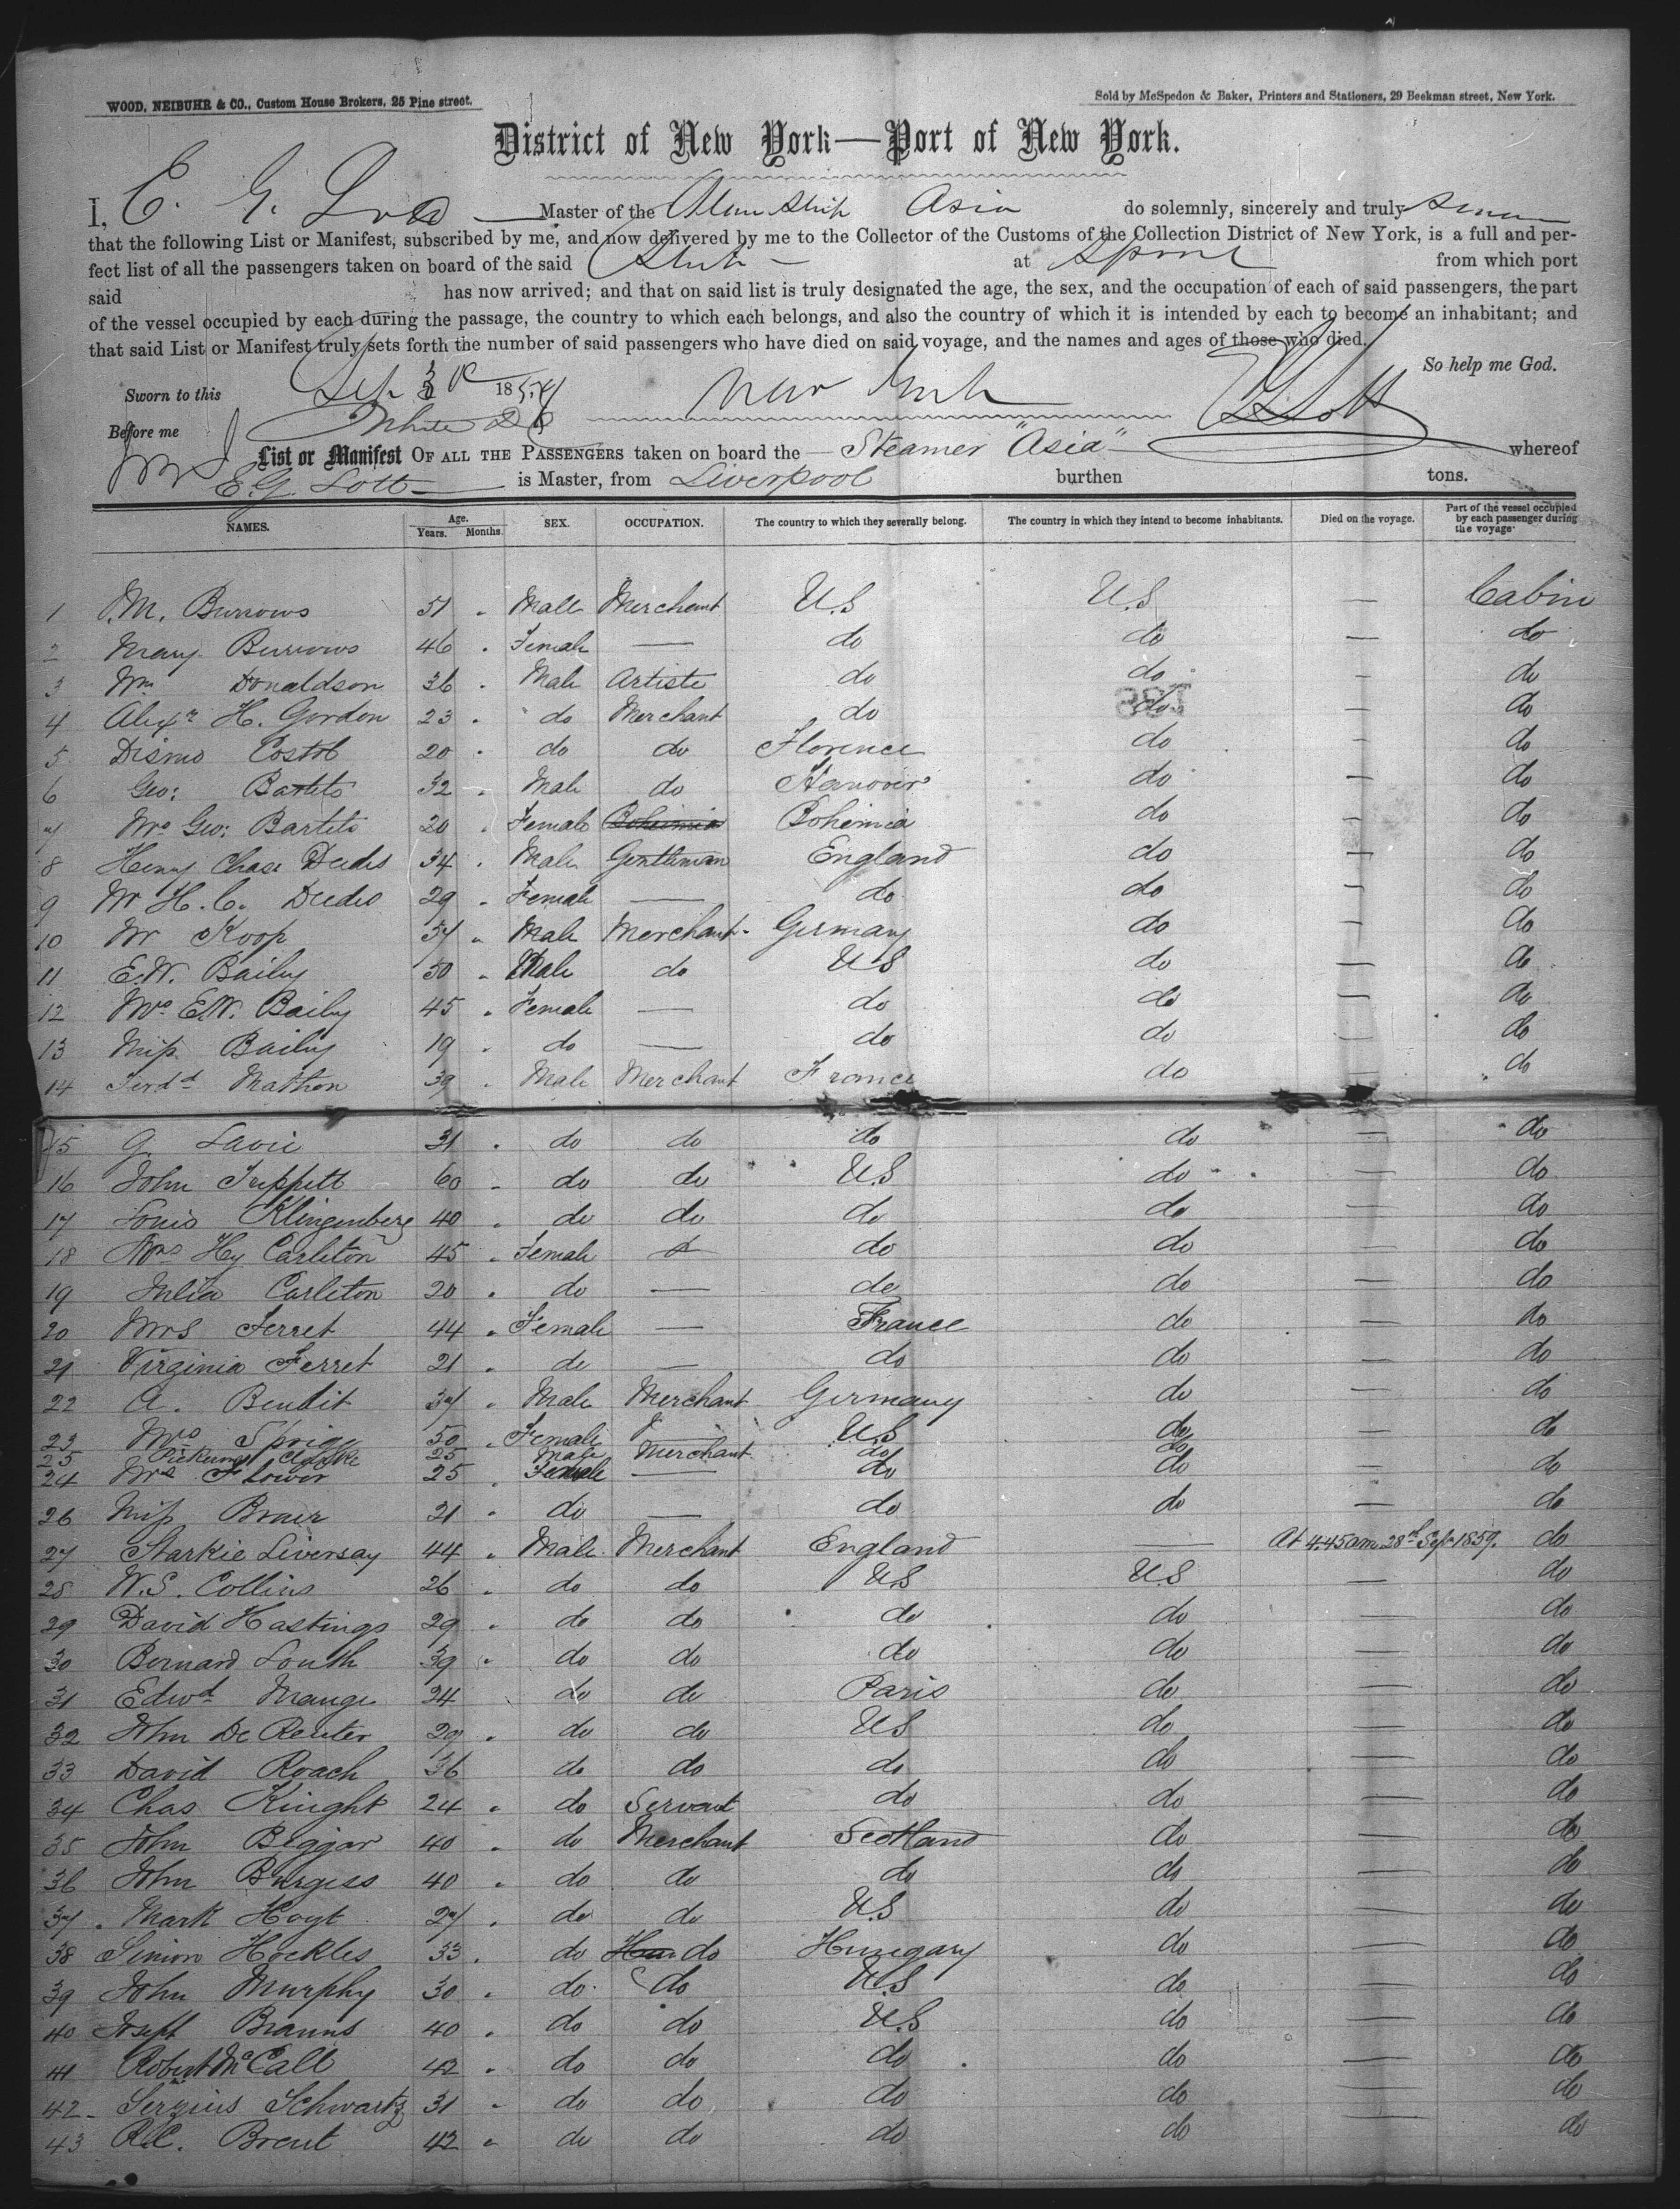 WOOD, NEIBUHR & CO., Custom House Brokers, 25 Pine street.
Sold by McSpedon & Baker, Printers and Stationers, 29 Beekman street, New York.
District of New York—Port of New York.
I, E. G. Master of the Asia do solemnly, sincerely and truly
that the following List or Manifest, subscribed by me, and now delivered by me to the Collector of the Customs of the Collection District of New York, is a full and per-
fect list of all the passengers taken on board of the said at from which port
said has now arrived; and that on said list is truly designated the age, the sex, and the occupation of each of said passengers, the part
of the vessel occupied by each during the passage, the country to which each belongs, and also the country of which it is intended by each to become an inhabitant; and
that said List or Manifest truly sets forth the number of said passengers who have died on said voyage, and the names and ages of those who died.
So help me God.
Sworn to this Sep 3 185 New York E G Lott
Before me
List or Manifest OF ALL THE PASSENGERS taken on board the Steamer "Asia" whereof
E.G. Lott is Master, from Liverpool burthen tons.
NAMES. Age. Years. Months. SEX. OCCUPATION. The country to which they severally belong. The country in which they intend to become inhabitants. Died on the voyage. Part of the vessel occupied by each passenger during the voyage
1 M. Burrows 51 " Male Merchant U.S U.S — Cabin
2 Mary Burrows 46 " Female — do do — do
3 Wm Donaldson 36 " Male Artiste do do — do
4 Alexr H. Gordon 23 " do Merchant do do — do
5 Dismo 20 " do do Florence do — do
6 Geo: Bartels 32 " Male do Hanover do — do
7 Mrs Geo: Bartels 20 " Female Bohemia Bohemia do — do
8 Henry Chase Deeds 34 " Male Gentleman England do — do
9 H. C. Deeds 29 " Female — do do — do
10 Koop 37 " Male Merchant Germany do — do
11 E.W. Baily 50 " Male do US do — do
12 Mrs E.W. Baily 45 " Female — do do — do
13 Miss Baily 19 " do — do do — do
14 Ferdd Mathon 39 " Male Merchant France do — do
15 G. Lavie 31 " do do do do — do
16 John Tuppitt 60 " do do U.S do — do
17 Louis Klingenberg 40 " do do do do — do
18 Mrs Hy Carleton 45 " Female do do — do
19 Julia Carleton 20 " do — do do — do
20 Mrs Ferret 44 " Female — France do — do
21 Virginia Ferret 21 " do — do do — do
22 A. Bendit 37 " Male Merchant Germany do — do
23 Mrs 50 " Female — U.S do — do
25 Pickering Clarke 25 Male Merchant do do
24 Mrs Flower 25 " Female — do do — do
26 Miss 21 " do — do do — do
27 Starkie Liversay 44 " Male Merchant England — At 4.45 am 28th Sept 1859. do
28 W.S. Collins 26 " do do US U.S — do
29 David Hastings 29 " do do do do — do
30 Bernard South 39 " do do do do — do
31 Edwd Mange 24 do do Paris do — do
32 John De Reuter 29 " do do US do — do
33 David Roach 36 do do do do — do
34 Chas Knight 24 " do Servant do do — do
35 John Beggar 40 " do Merchant Scotland do — do
36 John Burgess 40 " do do do do — do
37 Mark Hoyt 27 " do do U.S do — do
38 Simon Hockles 33 " do do Hungary do — do
39 John Murphy 30 " do do U.S do — do
40 Joseph Brauns 40 " do do U.S do — do
41 Robert McCall 42 " do do do do — do
42 Sergius Schwartz 31 " do do do do — do
43 R.C. Brent 42 " do do do do — do